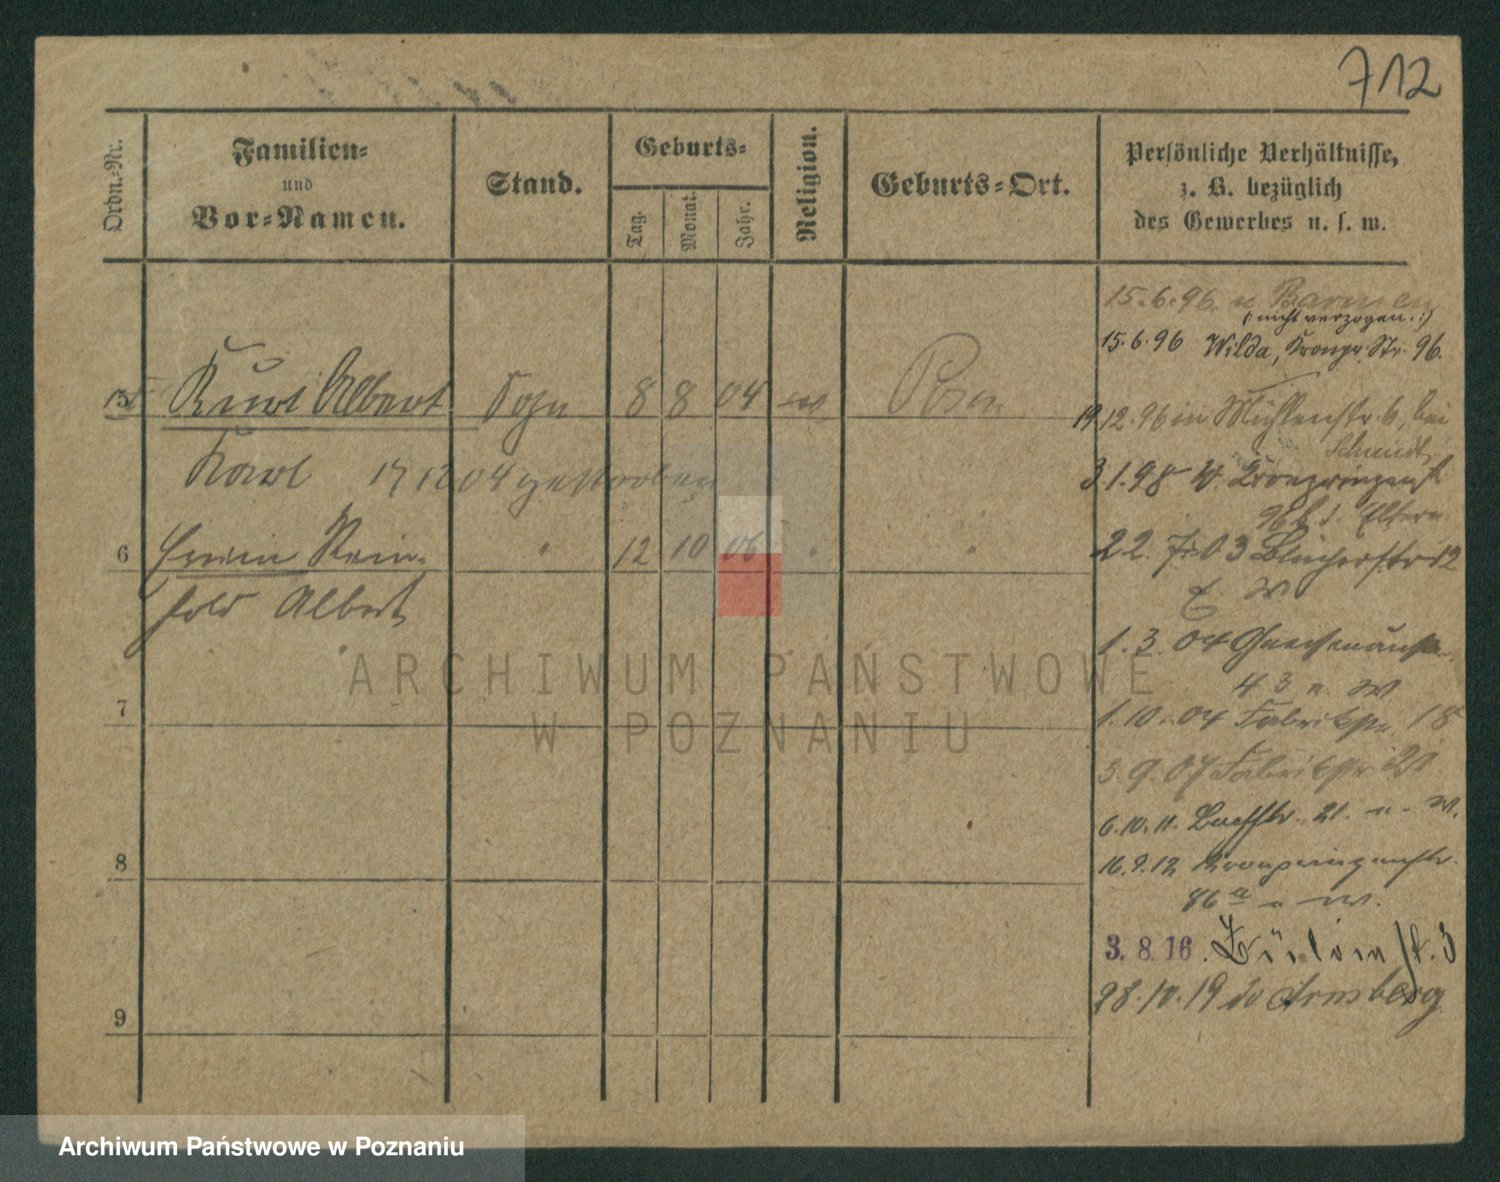 712
Ordn.-Nr.
Familien-
und
Vor-Namen.
Stand.
Geburts-
Tag.
Monat.
Jahr.
Religion.
Geburts-Ort.
Persönliche Verhältnisse,
z. B. bezüglich
des Gewerbes u. s. w.
15.6.96. n Barmen
(: nicht verzogen. :)
15.6.96 Wilda, Kronpr. Str. 96.
5 Kurt Albert Sohn 8 8 04 ev Posen
19.12.96 in Mühlenstr. 6, bei
Schmidt
Karl 17 12 04 gestorben
3.1.98 W. Kronprinzenst
96b d. Eltern
6 Erwin Rein- " 12 10 06 " "
22. 7. 03 Blücherstr 12
hold Albert
E. W
1. 3. 04 Gneisenaustr
43 n. W
7
1. 10. 04 Fabrikstr. 18
3. 9. 07 Fabrikstr 21
6.10.11. Bachstr. 21. n. W.
8
16.9.12 Kronprinzenstr.
86a n W.
3. 8. 16.
28.10.19 Arnsberg
9
ARCHIWUM PAŃSTWOWE
W POZNANIU
Archiwum Państwowe w Poznaniu